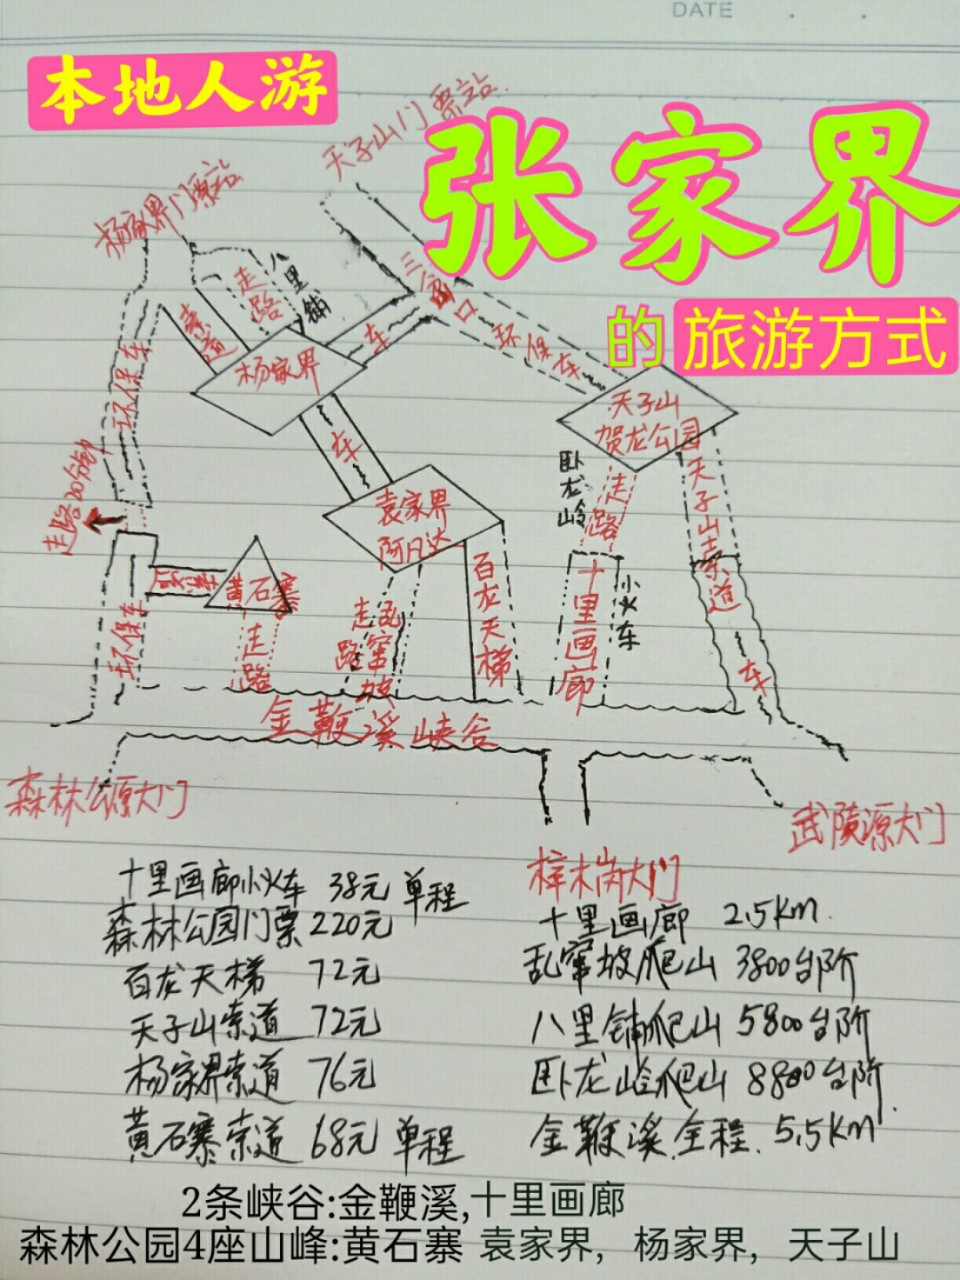 DATE
本地人游
张家界
的旅游方式
天子山门票站
杨家界门票站
八里铺
走路
索道
三岔口
车
环保车
杨家界
环保车
天子山
贺龙公园
车
卧龙岭
走路
天子山索道
袁家界
阿凡达
走路20分钟
黄石寨
百龙天梯
十里画廊
小火车
环保车
走路
走路
乱窜坡
车
金鞭溪峡谷
森林公源大门
武陵源大门
梓木岗大门
十里画廊小火车 38元 单程
森林公园门票220元
百龙天梯 72元
天子山索道 72元
杨家界索道 76元
黄石寨索道 68元 单程
十里画廊 2.5Km
乱窜坡爬山 3800台阶
八里铺爬山 5800台阶
卧龙岭爬山 8800台阶
金鞭溪全程 5.5Km
2条峡谷:金鞭溪,十里画廊
森林公园4座山峰:黄石寨 袁家界, 杨家界, 天子山